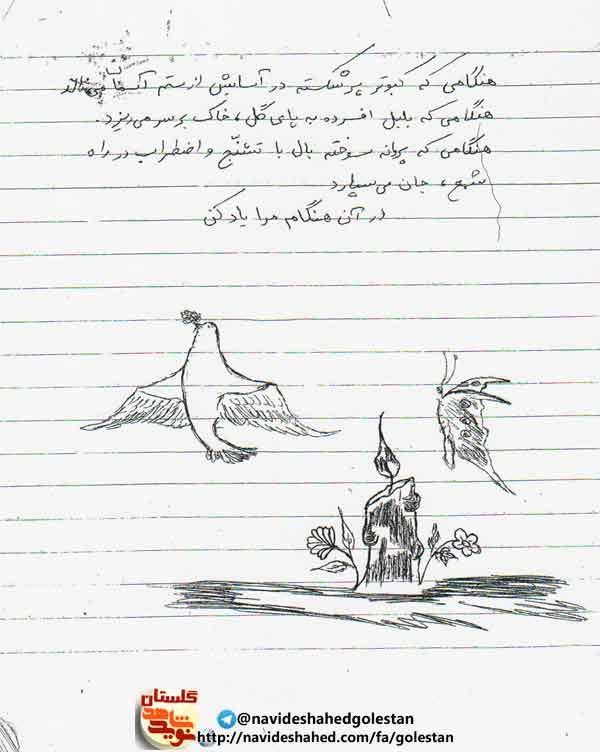 هنگامی که کبوتر پرشکسته در آسایش از ستم آسمان می‌نالد
هنگامی که بلبل افسرده به پای گل، خاک بر سر می‌ریزد.
هنگامی که پروانه سوخته بال با تشنّج و اضطراب در راه
شمع، جان می‌سپارد
در آن هنگام مرا یاد کن
گلستان
نوید شاهد
@navideshahedgolestan
http://navideshahed.com/fa/golestan